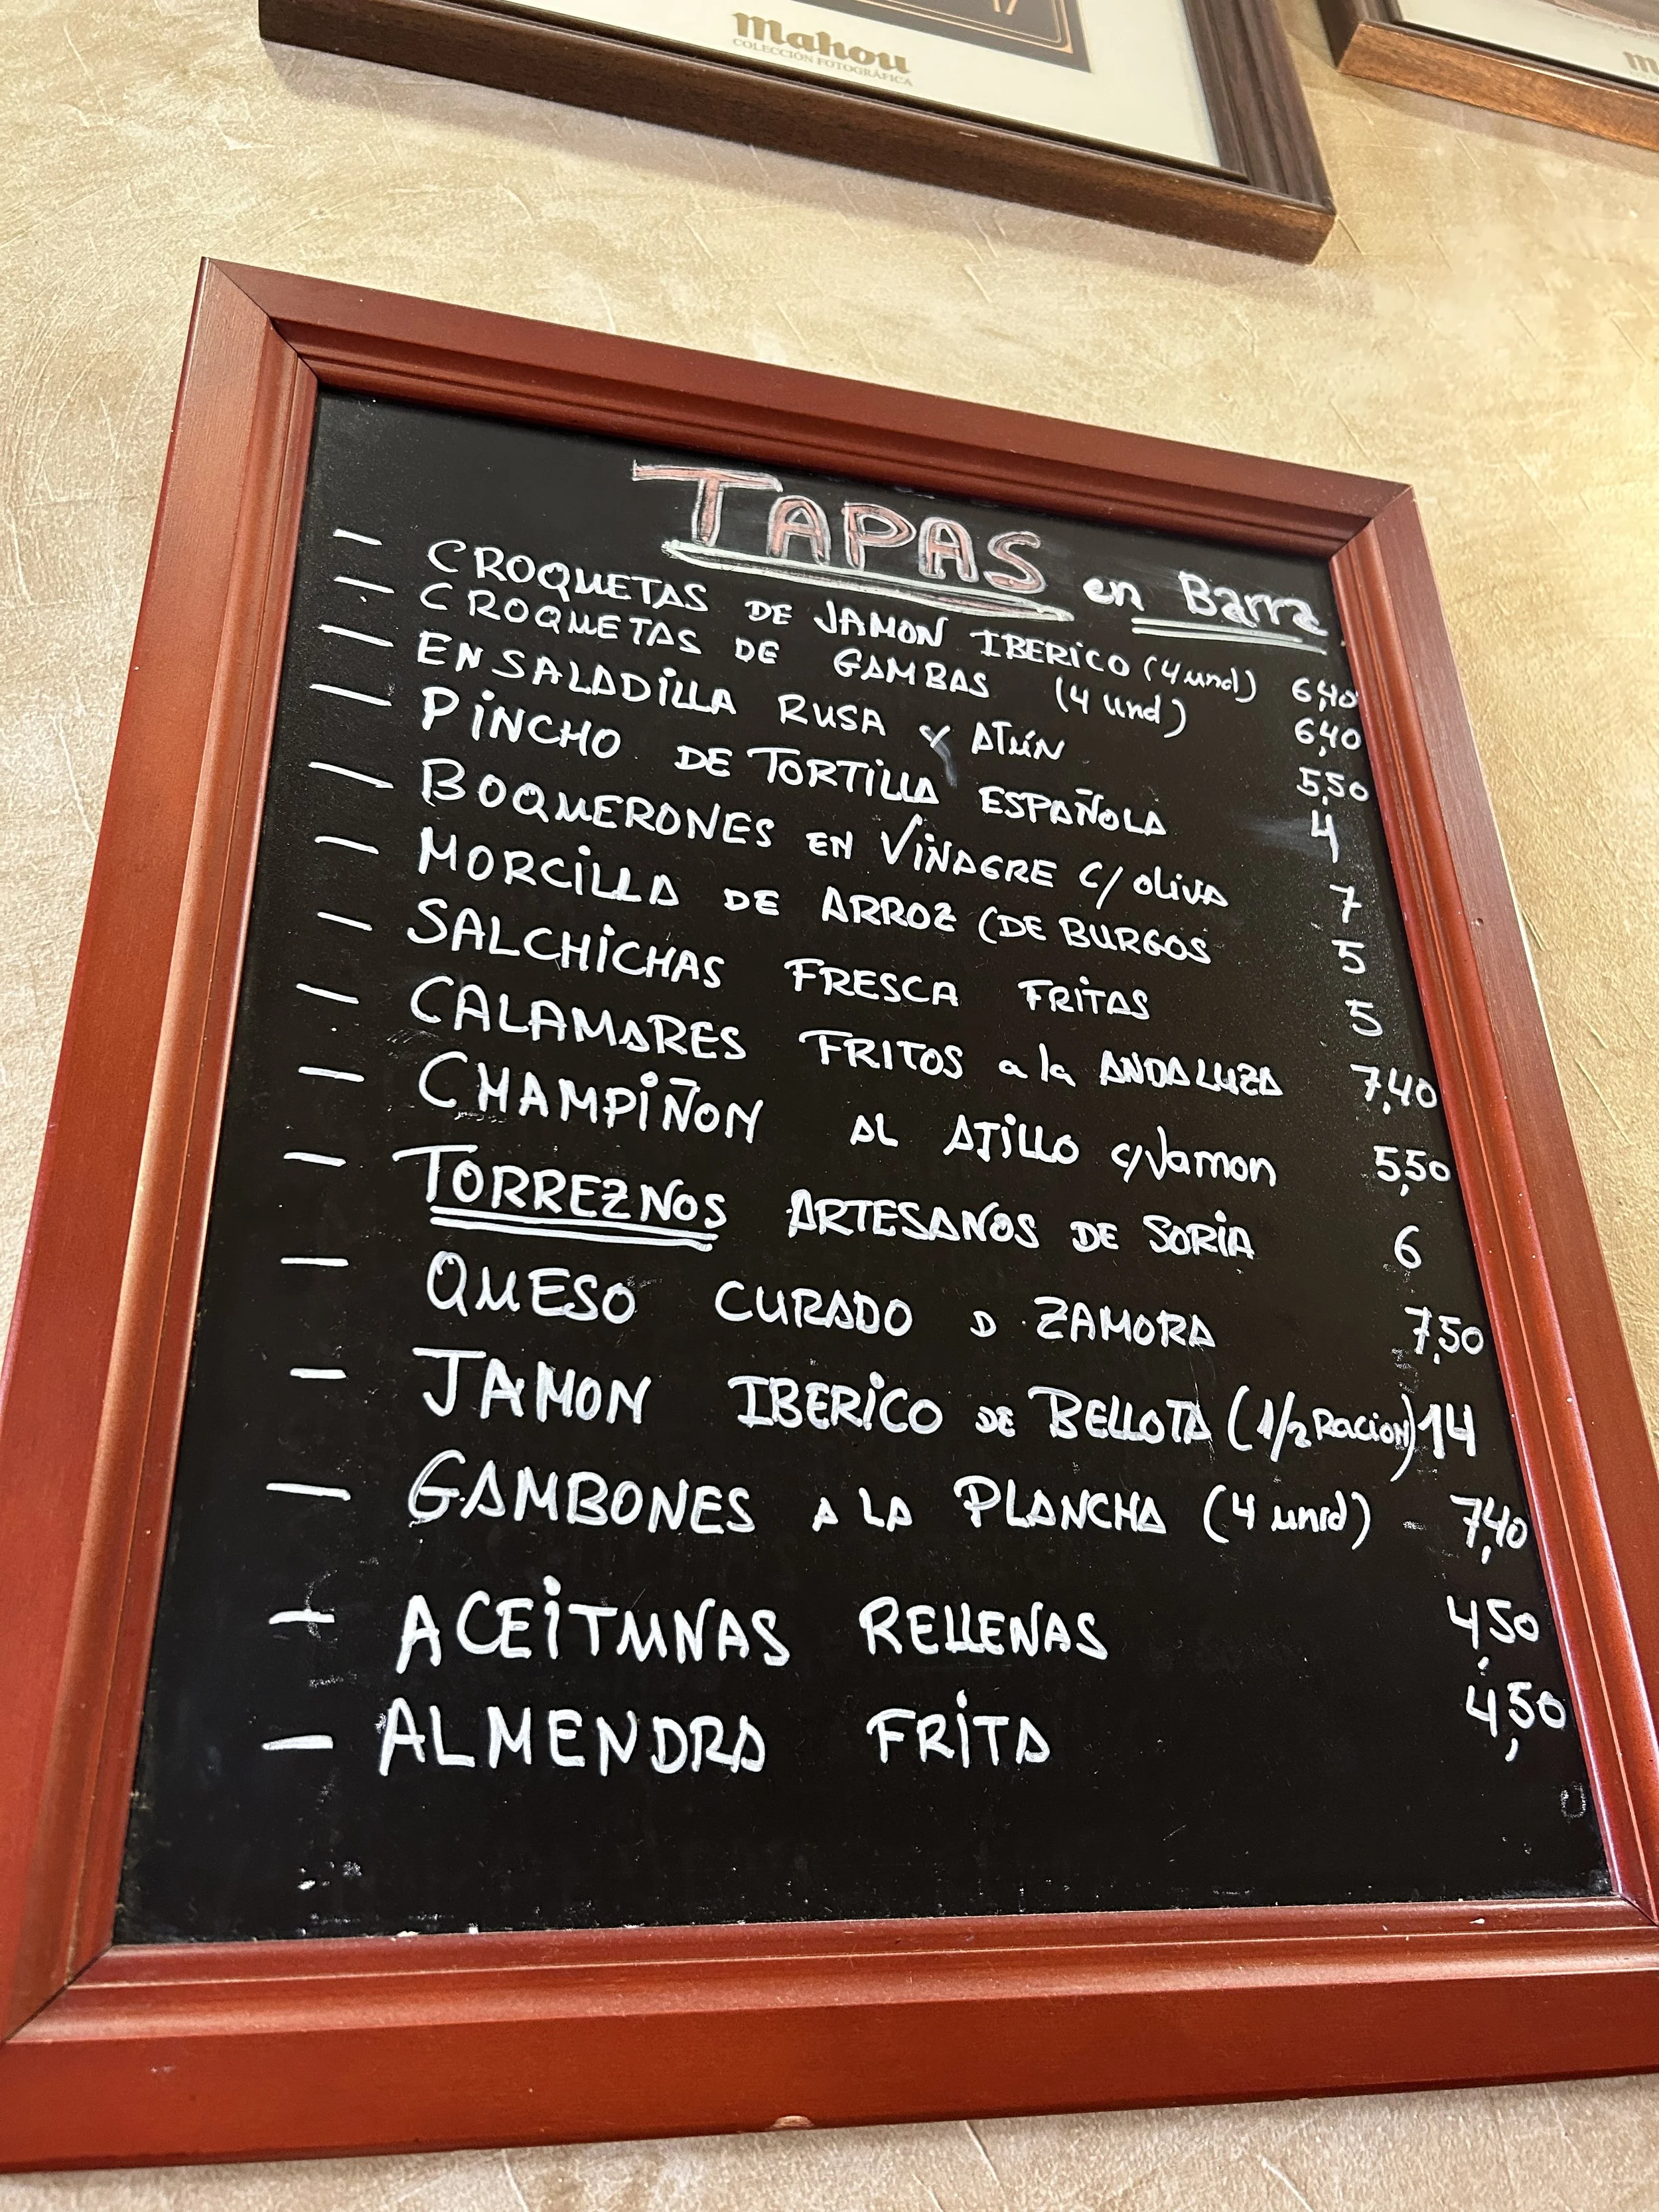 17
Mahou
COLECCIÓN FOTOGRÁFICA
m
TAPAS en Barra
— CROQUETAS DE JAMON IBERICO (4 und) 6,40
— CROQUETAS DE GAMBAS (4 und) 6,40
— ENSALADILLA RUSA Y ATÚN 5,50
— PINCHO DE TORTILLA ESPAÑOLA 4
— BOQUERONES EN VINAGRE C/ oliva 7
— MORCILLA DE ARROZ (DE BURGOS 5
— SALCHICHAS FRESCA FRITAS 5
— CALAMARES FRITOS a la ANDALUZA 7,40
— CHAMPIÑON AL AJILLO c/Jamon 5,50
— TORREZNOS ARTESANOS DE SORIA 6
— QUESO CURADO D ZAMORA 7,50
— JAMON IBERICO DE BELLOTA (1/2 Racion) 14
— GAMBONES A LA PLANCHA (4 unid) - 7,40
— ACEITUNAS RELLENAS 4,50
— ALMENDRA FRITA 4,50